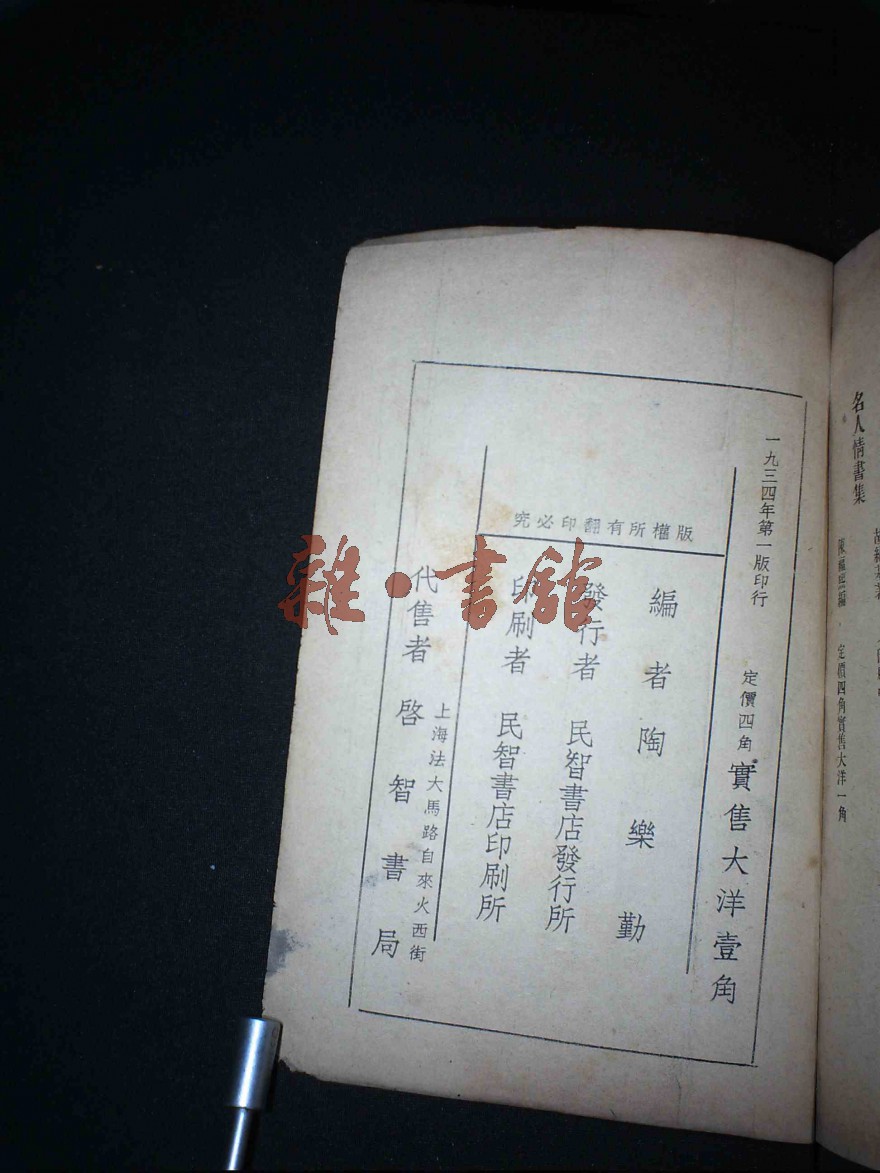 一九三四年第一版印行
定價四角 實售大洋壹角
版權所有翻印必究
編者 陶樂勤
發行者 民智書店發行所
印刷者 民智書店印刷所
上海法大馬路自來火西街
代售者 啓智書局
雜·書館
名人情書集
定價四角實售大洋一角